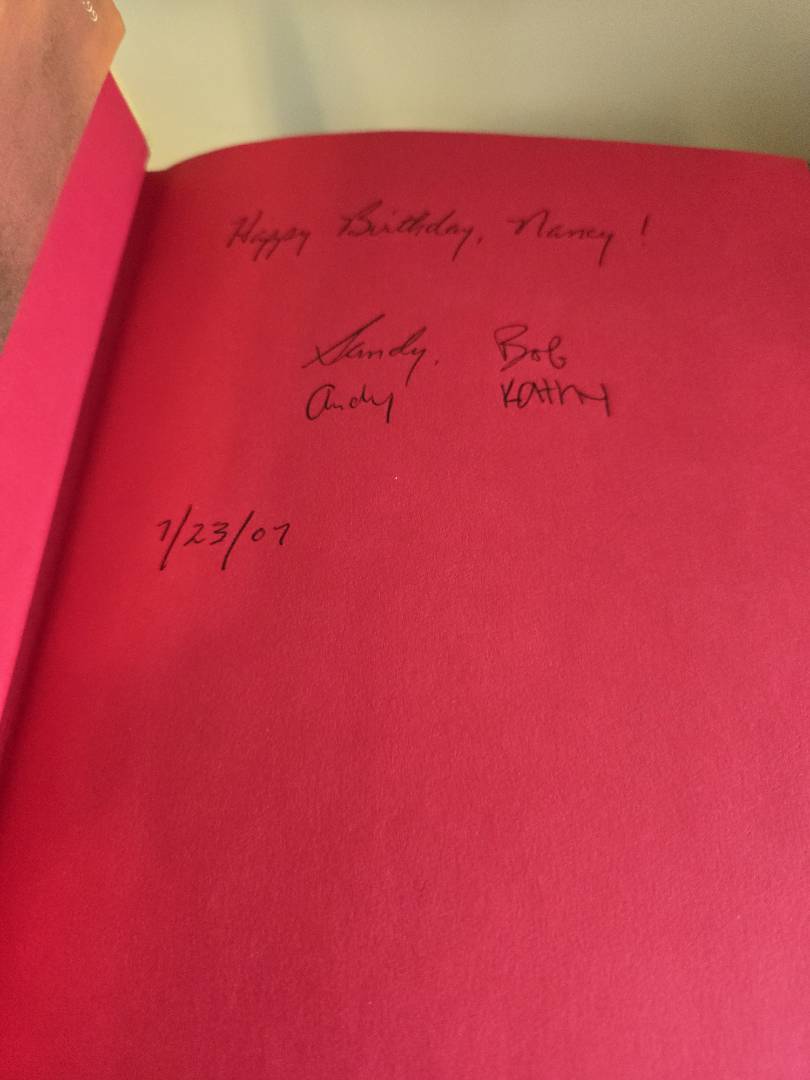 Happy Birthday, Nancy!
Sandy, Bob
Andy Kathy
7/23/07